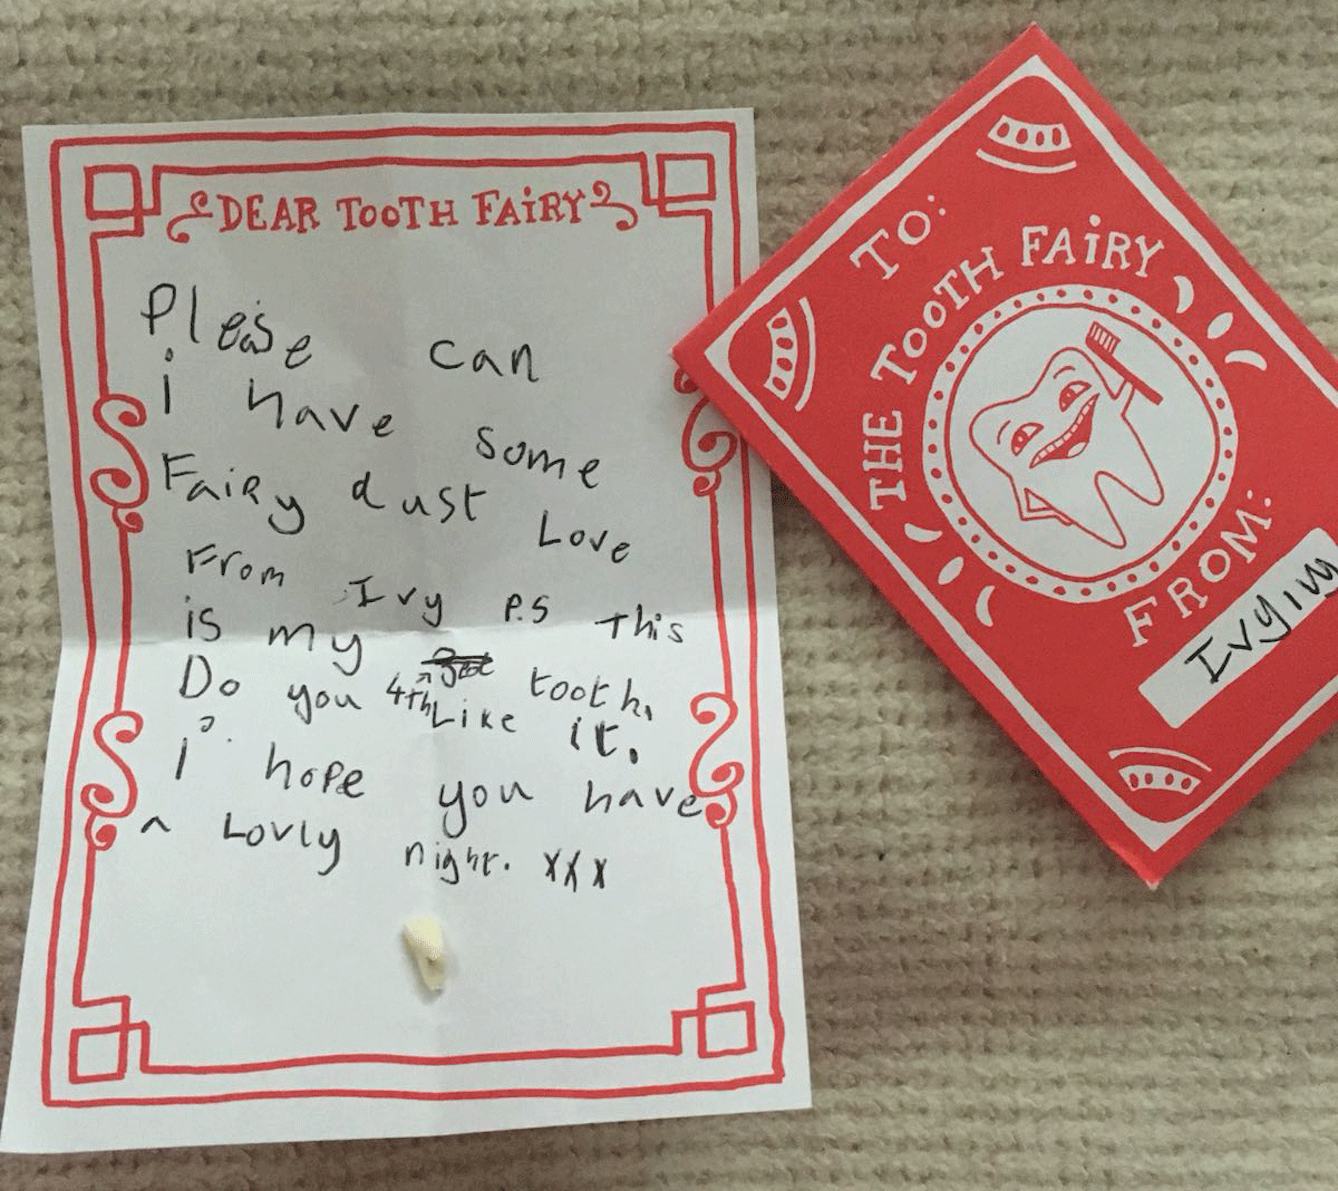 DEAR TOOTH FAIRY
Please can
i have some
Fairy dust Love
From Ivy P.S This
is my 4th tooth,
Do you Like it.
i hope you have
a Lovly night. xxx
TO:
THE TOOTH FAIRY
FROM:
Ivy